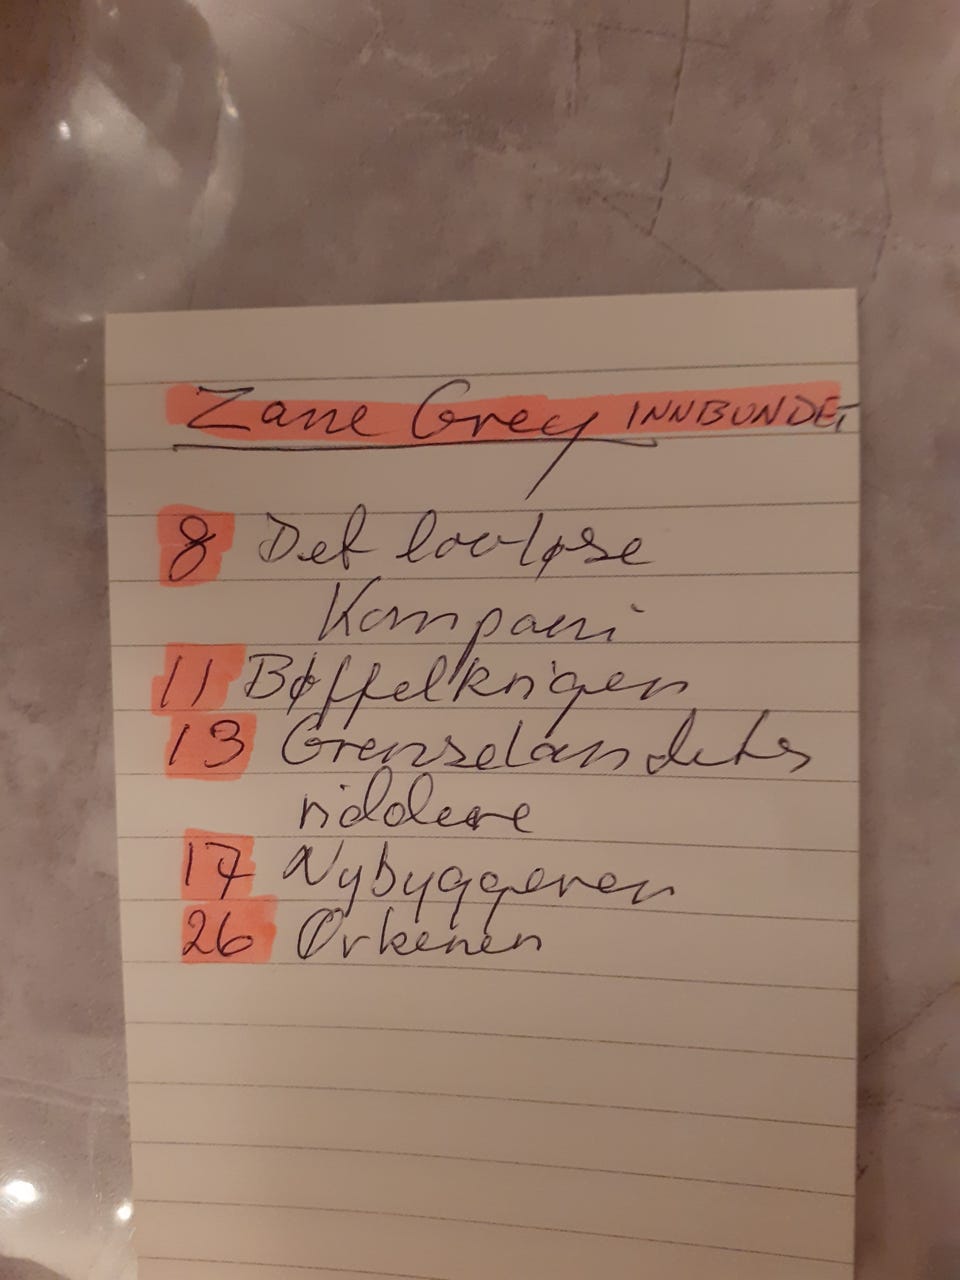 Zane Grey INNBUNDET
8 Det lovløse
Kompani
11 Bøffelkrigen
13 Grenselandets
riddere
17 Nybyggeren
26 Ørkenen